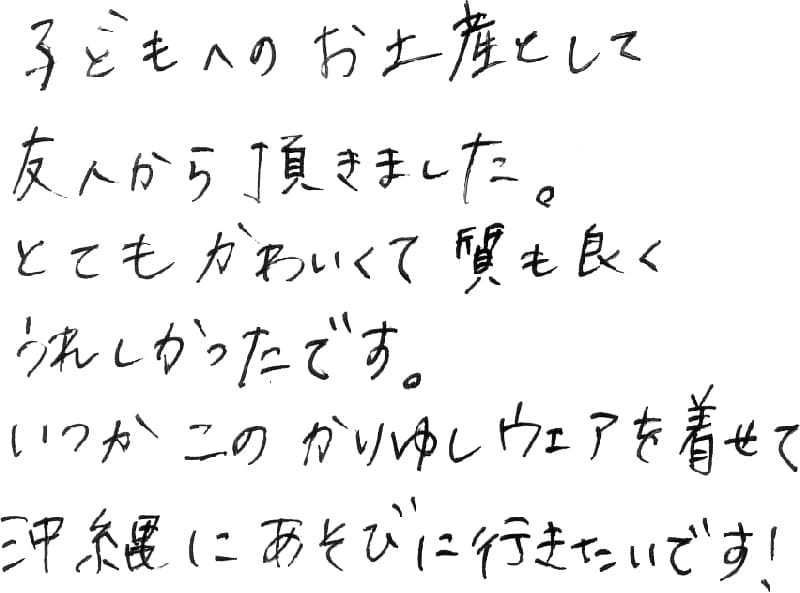 子どもへのお土産として
友人から頂きました。
とてもかわいくて質も良く
うれしかったです。
いつかこのかりゆしウェアを着せて
沖縄にあそびに行きたいです!